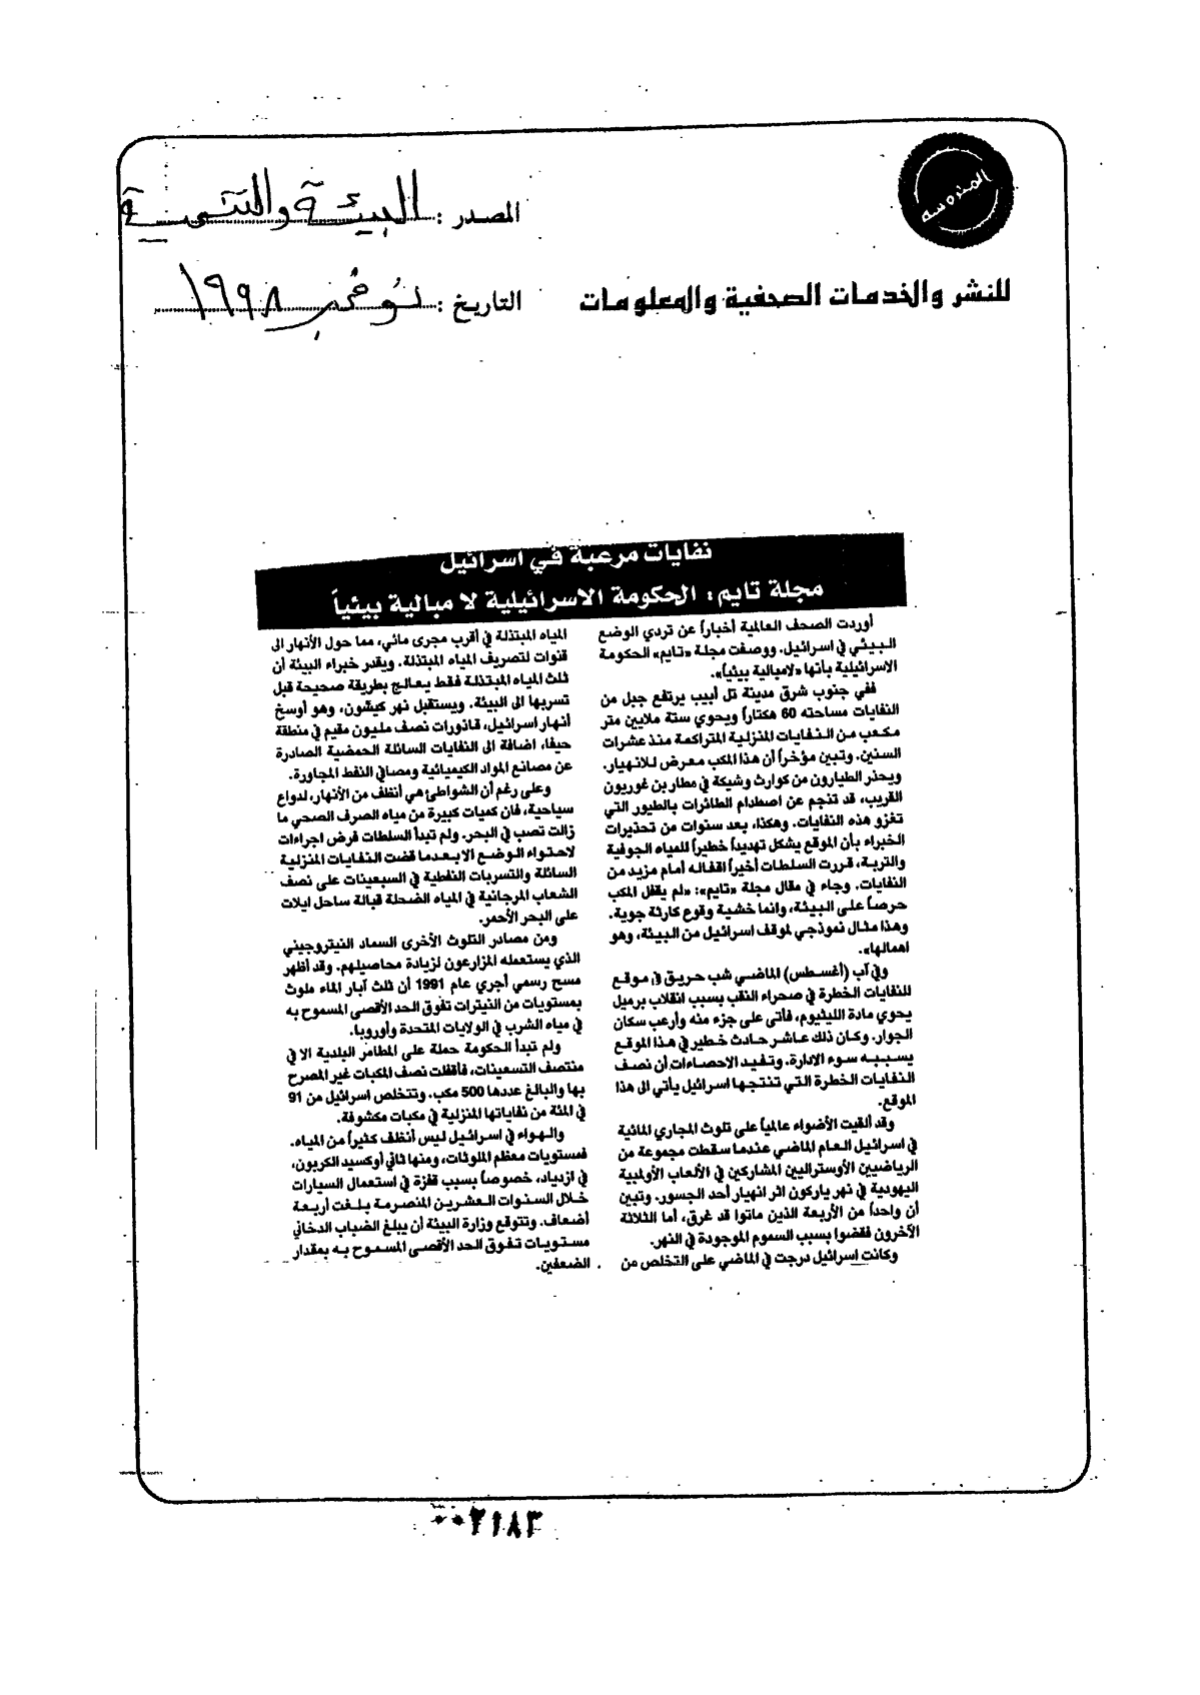 المصدر : البيئة والتنمية
للنشر والخدمات الصحفية والمعلومات
التاريخ : نوفمبر ١٩٩٨
نفايات مرعبة في اسرائيل
مجلة تايم : الحكومة الاسرائيلية لا مبالية بيئياً
أوردت الصحف العالمية أخباراً عن تردي الوضع
البيئي في اسرائيل. ووصفت مجلة «تايم» الحكومة
الاسرائيلية بأنها «لامبالية بيئياً».
ففي جنوب شرق مدينة تل أبيب يرتفع جبل من
النفايات مساحته 60 هكتاراً ويحوي ستة ملايين متر
مكعب من النفايات المنزلية المتراكمة منذ عشرات
السنين. وتبين مؤخراً أن هذا المكب معرض للانهيار.
ويحذر الطيارون من كوارث وشيكة في مطار بن غوريون
القريب، قد تنجم عن اصطدام الطائرات بالطيور التي
تغزو هذه النفايات. وهكذا، بعد سنوات من تحذيرات
الخبراء بأن الموقع يشكل تهديداً خطيراً للمياه الجوفية
والتربة، قررت السلطات أخيراً اقفاله أمام مزيد من
النفايات. وجاء في مقال مجلة «تايم»: «لم يقفل المكب
حرصاً على البيئة، وانما خشية وقوع كارثة جوية.
وهذا مثال نموذجي لموقف اسرائيل من البيئة، وهو
اهمالها».
وفي آب (أغسطس) الماضي شب حريق في موقع
للنفايات الخطرة في صحراء النقب بسبب انقلاب برميل
يحوي مادة الليثيوم، فأتى على جزء منه وأرعب سكان
الجوار. وكان ذلك عاشر حادث خطير في هذا الموقع
يسببه سوء الادارة. وتفيد الاحصاءات أن نصف
النفايات الخطرة التي تنتجها اسرائيل يأتي الى هذا
الموقع.
وقد ألقيت الأضواء عالمياً على تلوث المجاري المائية
في اسرائيل العام الماضي عندما سقطت مجموعة من
الرياضيين الأوستراليين المشاركين في الألعاب الأولمبية
اليهودية في نهر ياركون اثر انهيار أحد الجسور. وتبين
أن واحداً من الأربعة الذين ماتوا قد غرق، أما الثلاثة
الآخرون فقضوا بسبب السموم الموجودة في النهر.
وكانت اسرائيل درجت في الماضي على التخلص من
المياه المبتذلة في أقرب مجرى مائي، مما حول الأنهار الى
قنوات لتصريف المياه المبتذلة. ويقدر خبراء البيئة أن
ثلث المياه المبتذلة فقط يعالج بطريقة صحيحة قبل
تسربها الى البيئة. ويستقبل نهر كيشون، وهو أوسخ
أنهار اسرائيل، قاذورات نصف مليون مقيم في منطقة
حيفا، اضافة الى النفايات السائلة الحمضية الصادرة
عن مصانع المواد الكيميائية ومصافي النفط المجاورة.
وعلى رغم أن الشواطئ هي أنظف من الأنهار، لدواع
سياحية، فان كميات كبيرة من مياه الصرف الصحي ما
زالت تصب في البحر. ولم تبدأ السلطات فرض اجراءات
لاحتواء الوضع الا بعدما قضت النفايات المنزلية
السائلة والتسربات النفطية في السبعينات على نصف
الشعاب المرجانية في المياه الضحلة قبالة ساحل ايلات
على البحر الأحمر.
ومن مصادر التلوث الأخرى السماد النيتروجيني
الذي يستعمله المزارعون لزيادة محاصيلهم. وقد أظهر
مسح رسمي أجري عام 1991 أن ثلث آبار الماء ملوث
بمستويات من النيترات تفوق الحد الأقصى المسموح به
في مياه الشرب في الولايات المتحدة وأوروبا.
ولم تبدأ الحكومة حملة على المطامر البلدية الا في
منتصف التسعينات، فأقفلت نصف المكبات غير المصرح
بها والبالغ عددها 500 مكب. وتتخلص اسرائيل من 91
في المئة من نفاياتها المنزلية في مكبات مكشوفة.
والهواء في اسرائيل ليس أنظف كثيراً من المياه.
فمستويات معظم الملوثات، ومنها ثاني أوكسيد الكربون،
في ازدياد، خصوصاً بسبب قفزة في استعمال السيارات
خلال السنوات العشرين المنصرمة بلغت أربعة
أضعاف. وتتوقع وزارة البيئة أن يبلغ الضباب الدخاني
مستويات تفوق الحد الأقصى المسموح به بمقدار
الضعفين.
٠٠٢١٨٣